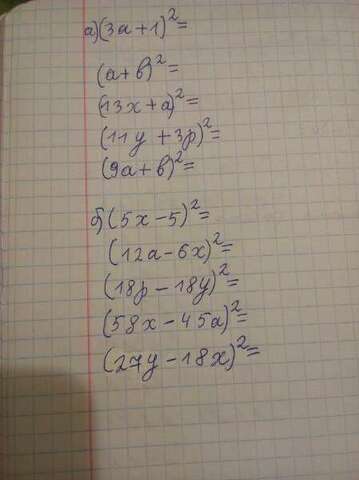 а)(3a+1)²=
(a+b)²=
(13x+a)²=
(11y+3p)²=
(9a+b)²=
б)(5x-5)²=
(12a-6x)²=
(18p-18y)²=
(58x-45a)²=
(27y-18x)²=